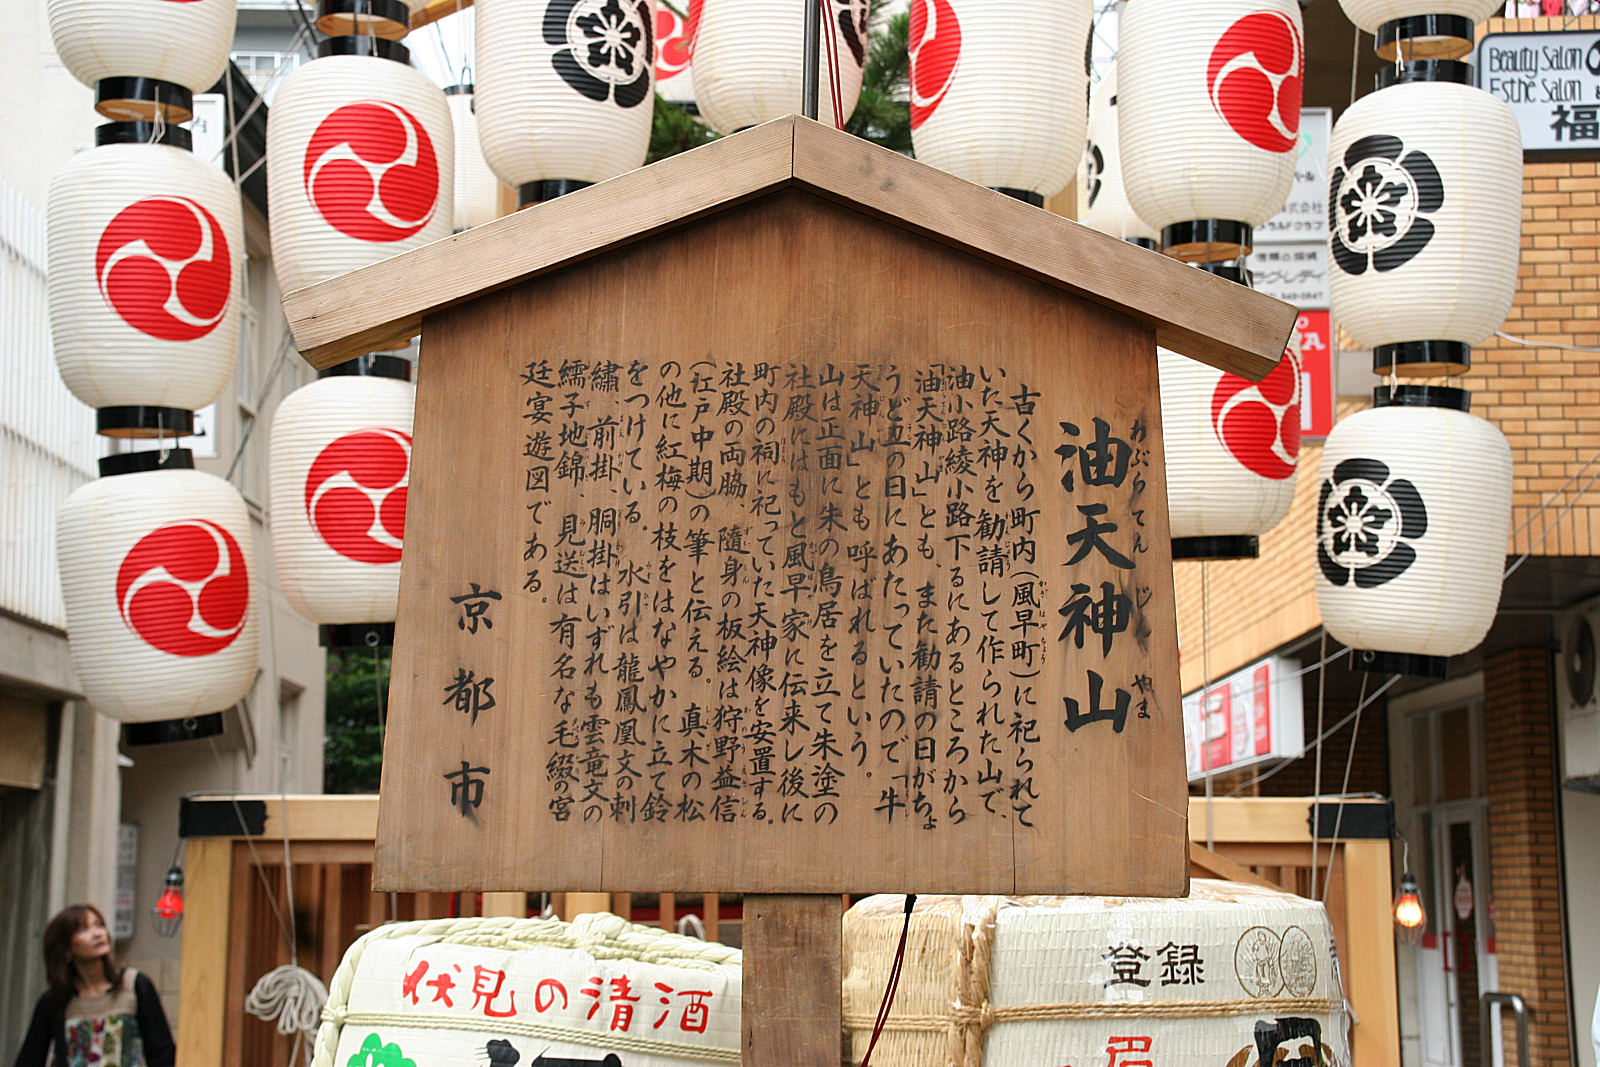 油天神山
あぶらてんじんやま
古くから町内(風早町)に祀られて
いた天神を勧請して作られた山で、
油小路綾小路下るにあるところから
「油天神山」とも、また勧請の日がちょ
うど丑の日にあたっていたので「牛
天神山」とも呼ばれるという。
山は正面に朱の鳥居を立て朱塗の
社殿にはもと風早家に伝来し後に
町内の祠に祀っていた天神像を安置する。
社殿の両脇、隨身の板絵は狩野益信
(江戸中期)の筆と伝える。真木の松
の他に紅梅の枝をはなやかに立て鈴
をつけている。水引は龍鳳凰文の刺
繡、前掛、胴掛はいずれも雲竜文の
繻子地錦、見送は有名な毛綴の宮
廷宴遊図である。
京都市
伏見の清酒
登録
Beauty Salon
Esthe Salon
福